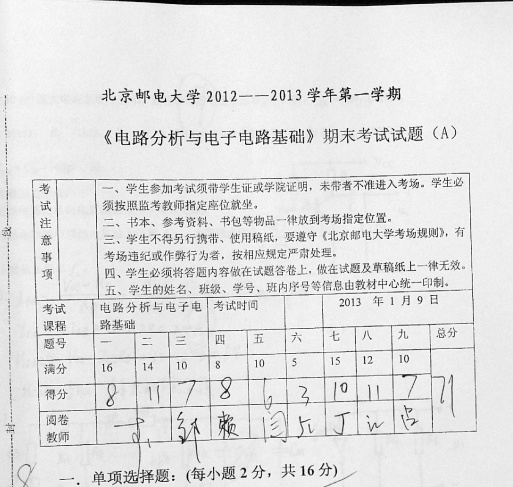 北京邮电大学 2012——2013 学年第一学期
《电路分析与电子电路基础》期末考试试题（A）
考试注意事项
一、学生参加考试须带学生证或学院证明，未带者不准进入考场。学生必
须按照监考教师指定座位就坐。
二、书本、参考资料、书包等物品一律放到考场指定位置。
三、学生不得另行携带、使用稿纸，要遵守《北京邮电大学考场规则》，有
考场违纪或作弊行为者，按相应规定严肃处理。
四、学生必须将答题内容做在试题答卷上，做在试题及草稿纸上一律无效。
五、学生的姓名、班级、学号、班内序号等信息由教材中心统一印制。
考试课程 电路分析与电子电路基础 考试时间 2013 年 1 月 9 日
题号 一 二 三 四 五 六 七 八 九 总分
满分 16 14 10 8 10 5 15 12 10
得分 8 11 7 8 6 3 10 11 7 71
阅卷教师
封
一．单项选择题：(每小题 2 分，共 16 分)
8